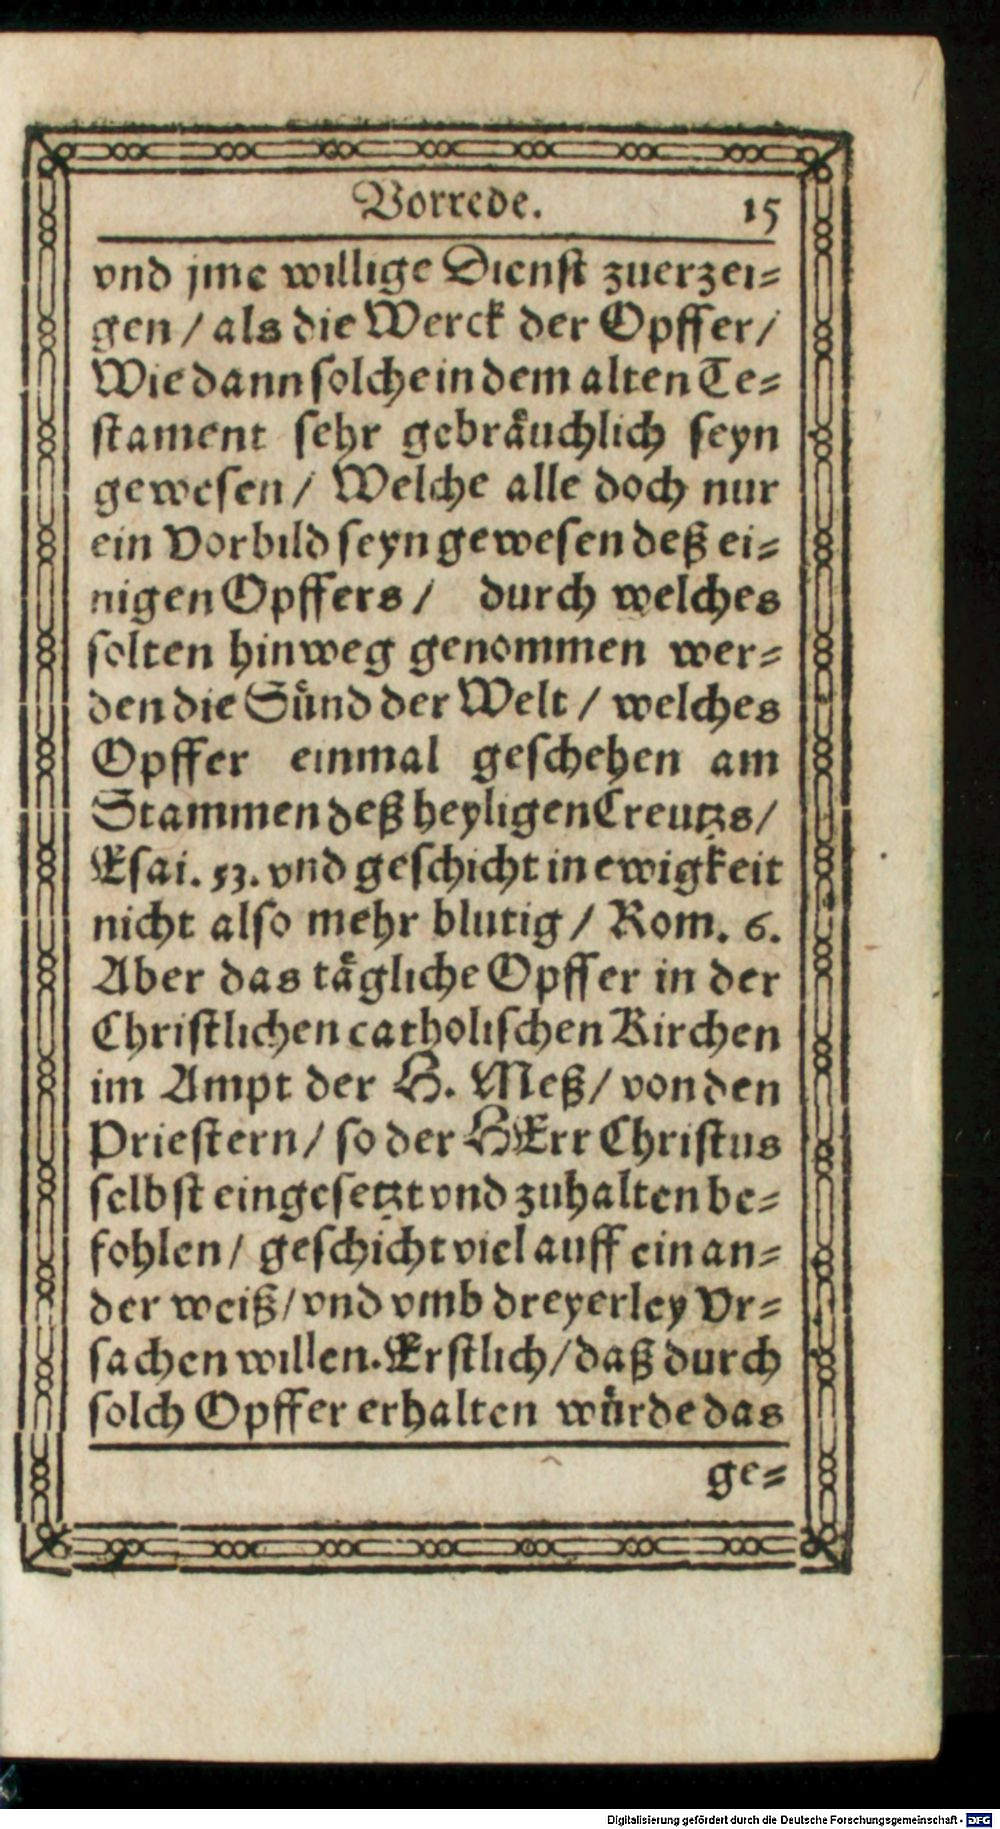 Vorrede. 15
vnd jme willige Dienst zuerzei=
gen / als die Werck der Opffer /
Wie dann solche in dem alten Te=
stament sehr gebräuchlich seyn
gewesen / Welche alle doch nur
ein Vorbild seyn gewesen deß ei=
nigen Opffers / durch welches
solten hinweg genommen wer=
den die Sünd der Welt / welches
Opffer einmal geschehen am
Stammen deß heyligen Creutzs /
Esai. 53. vnd geschicht in ewigkeit
nicht also mehr blutig / Rom. 6.
Aber das tägliche Opffer in der
Christlichen catholischen Kirchen
im Ampt der H. Meß / von den
Priestern / so der HErr Christus
selbst eingesetzt vnd zuhalten be=
fohlen / geschicht viel auff ein an=
der weiß / vnd vmb dreyerley Vr=
sachen willen. Erstlich / daß durch
solch Opffer erhalten würde das
ge=
Digitalisierung gefördert durch die Deutsche Forschungsgemeinschaft - DFG